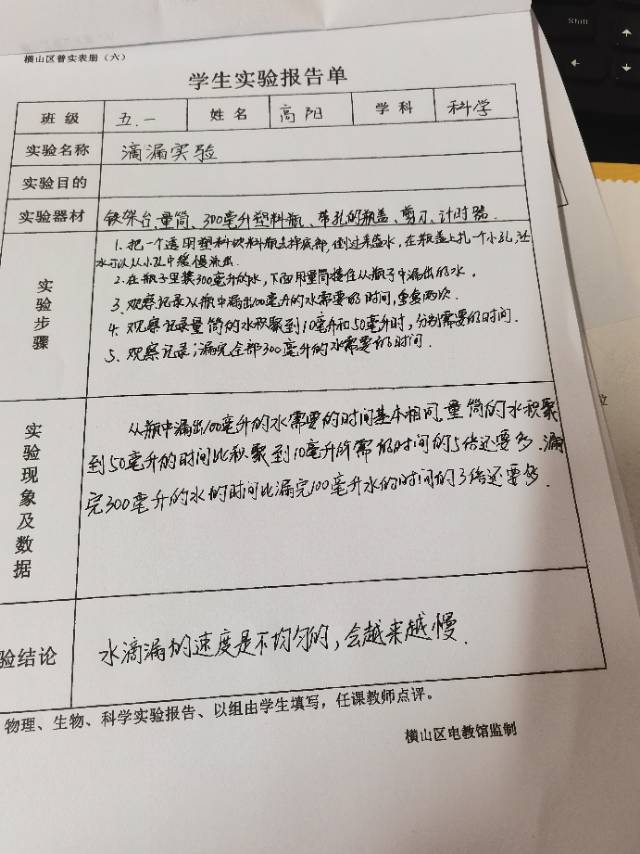 Shift
横山区普实表册（六）
学生实验报告单
班级 五.一 姓名 高阳 学科 科学
实验名称 滴漏实验
实验目的
实验器材 铁架台、量筒、300毫升塑料瓶、带孔的瓶盖、剪刀、计时器.
实验步骤
1. 把一个透明塑料饮料瓶去掉底部,倒过来盛水,在瓶盖上扎一个小孔,让
水可以从小孔中缓慢流出.
2. 在瓶子里装300毫升的水,下面用量筒接住从瓶子中漏出的水.
3. 观察记录从瓶中漏出100毫升的水需要的时间,重复两次.
4. 观察记录量筒的水积聚到10毫升和50毫升时,分别需要的时间.
5. 观察记录;漏完全部300毫升的水需要的时间.
实验现象及数据
从瓶中漏出100毫升的水需要的时间基本相同.量筒的水积聚
到50毫升的时间比积聚到10毫升所需的时间的5倍还要多.漏
完300毫升的水的时间比漏完100毫升水的时间的3倍还要多.
验结论 水滴漏的速度是不均匀的,会越来越慢.
物理、生物、科学实验报告、以组由学生填写，任课教师点评。
横山区电教馆监制